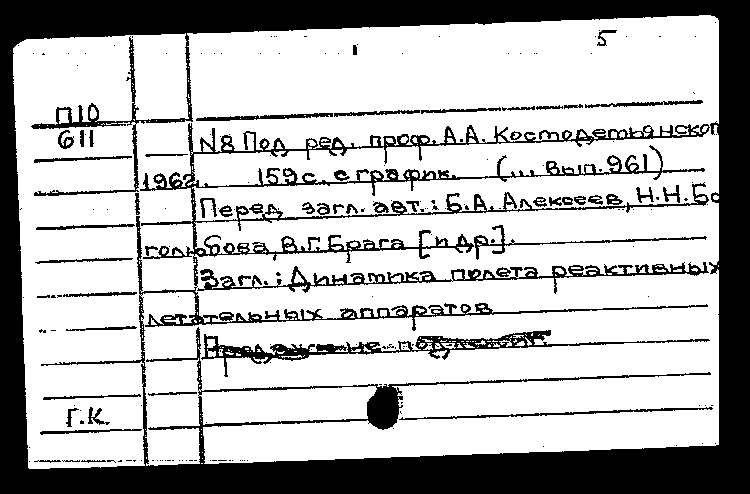 5
П10
611
N8 Под ред. проф. А.А. Космодемьянског
1962. 159 с. с график. (... Вып. 961)
Перед загл. авт.: Б.А. Алексеев, Н.Н. Бо
голюбова, В.Г. Брага [и др.].
Загл.: Динамика полета реактивных
летательных аппаратов
не
Г.К.